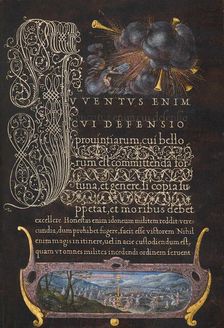 IUVENTUS ENIM
CUI DEFENSIO
prouintiarum, cui bello
rum est committenda for
tuna, et genere, si copia su
ppetat, et moribus debet
excellere Honestas enim idoneum militem reddit vere
cundia, dum prohibet fugere, facit esse victorem Nihil
enim magis in itinere, vel in acie custodiendum est,
quam vt omnes milites incedendi ordinem seruent